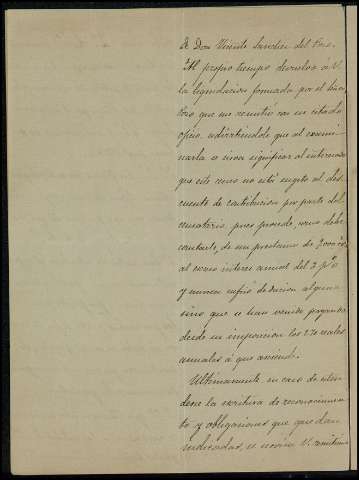 de Don Vicente Sanchez del
Al propio tiempo devuelvo á V.
la liquidacion formada por el
que me remitió con su citado
oficio, advirtiendole que al exami-
narla se sirva significar al interesado
que este censo no está sugeto al des-
cuento de contribucion por parte del
censatario, pues procede, como debe
constarle, de un prestamo de
al interes anual del 3 p%
y nunca sufrió deducion alguna
sino que se han venido pagando
desde su imposicion los 270 reales
anuales á que asciende.
Ultimamente en caso de esten-
derse la escritura de reconocimien-
to y obligaciones que quedan
indicadas, se servirá V. remitirme